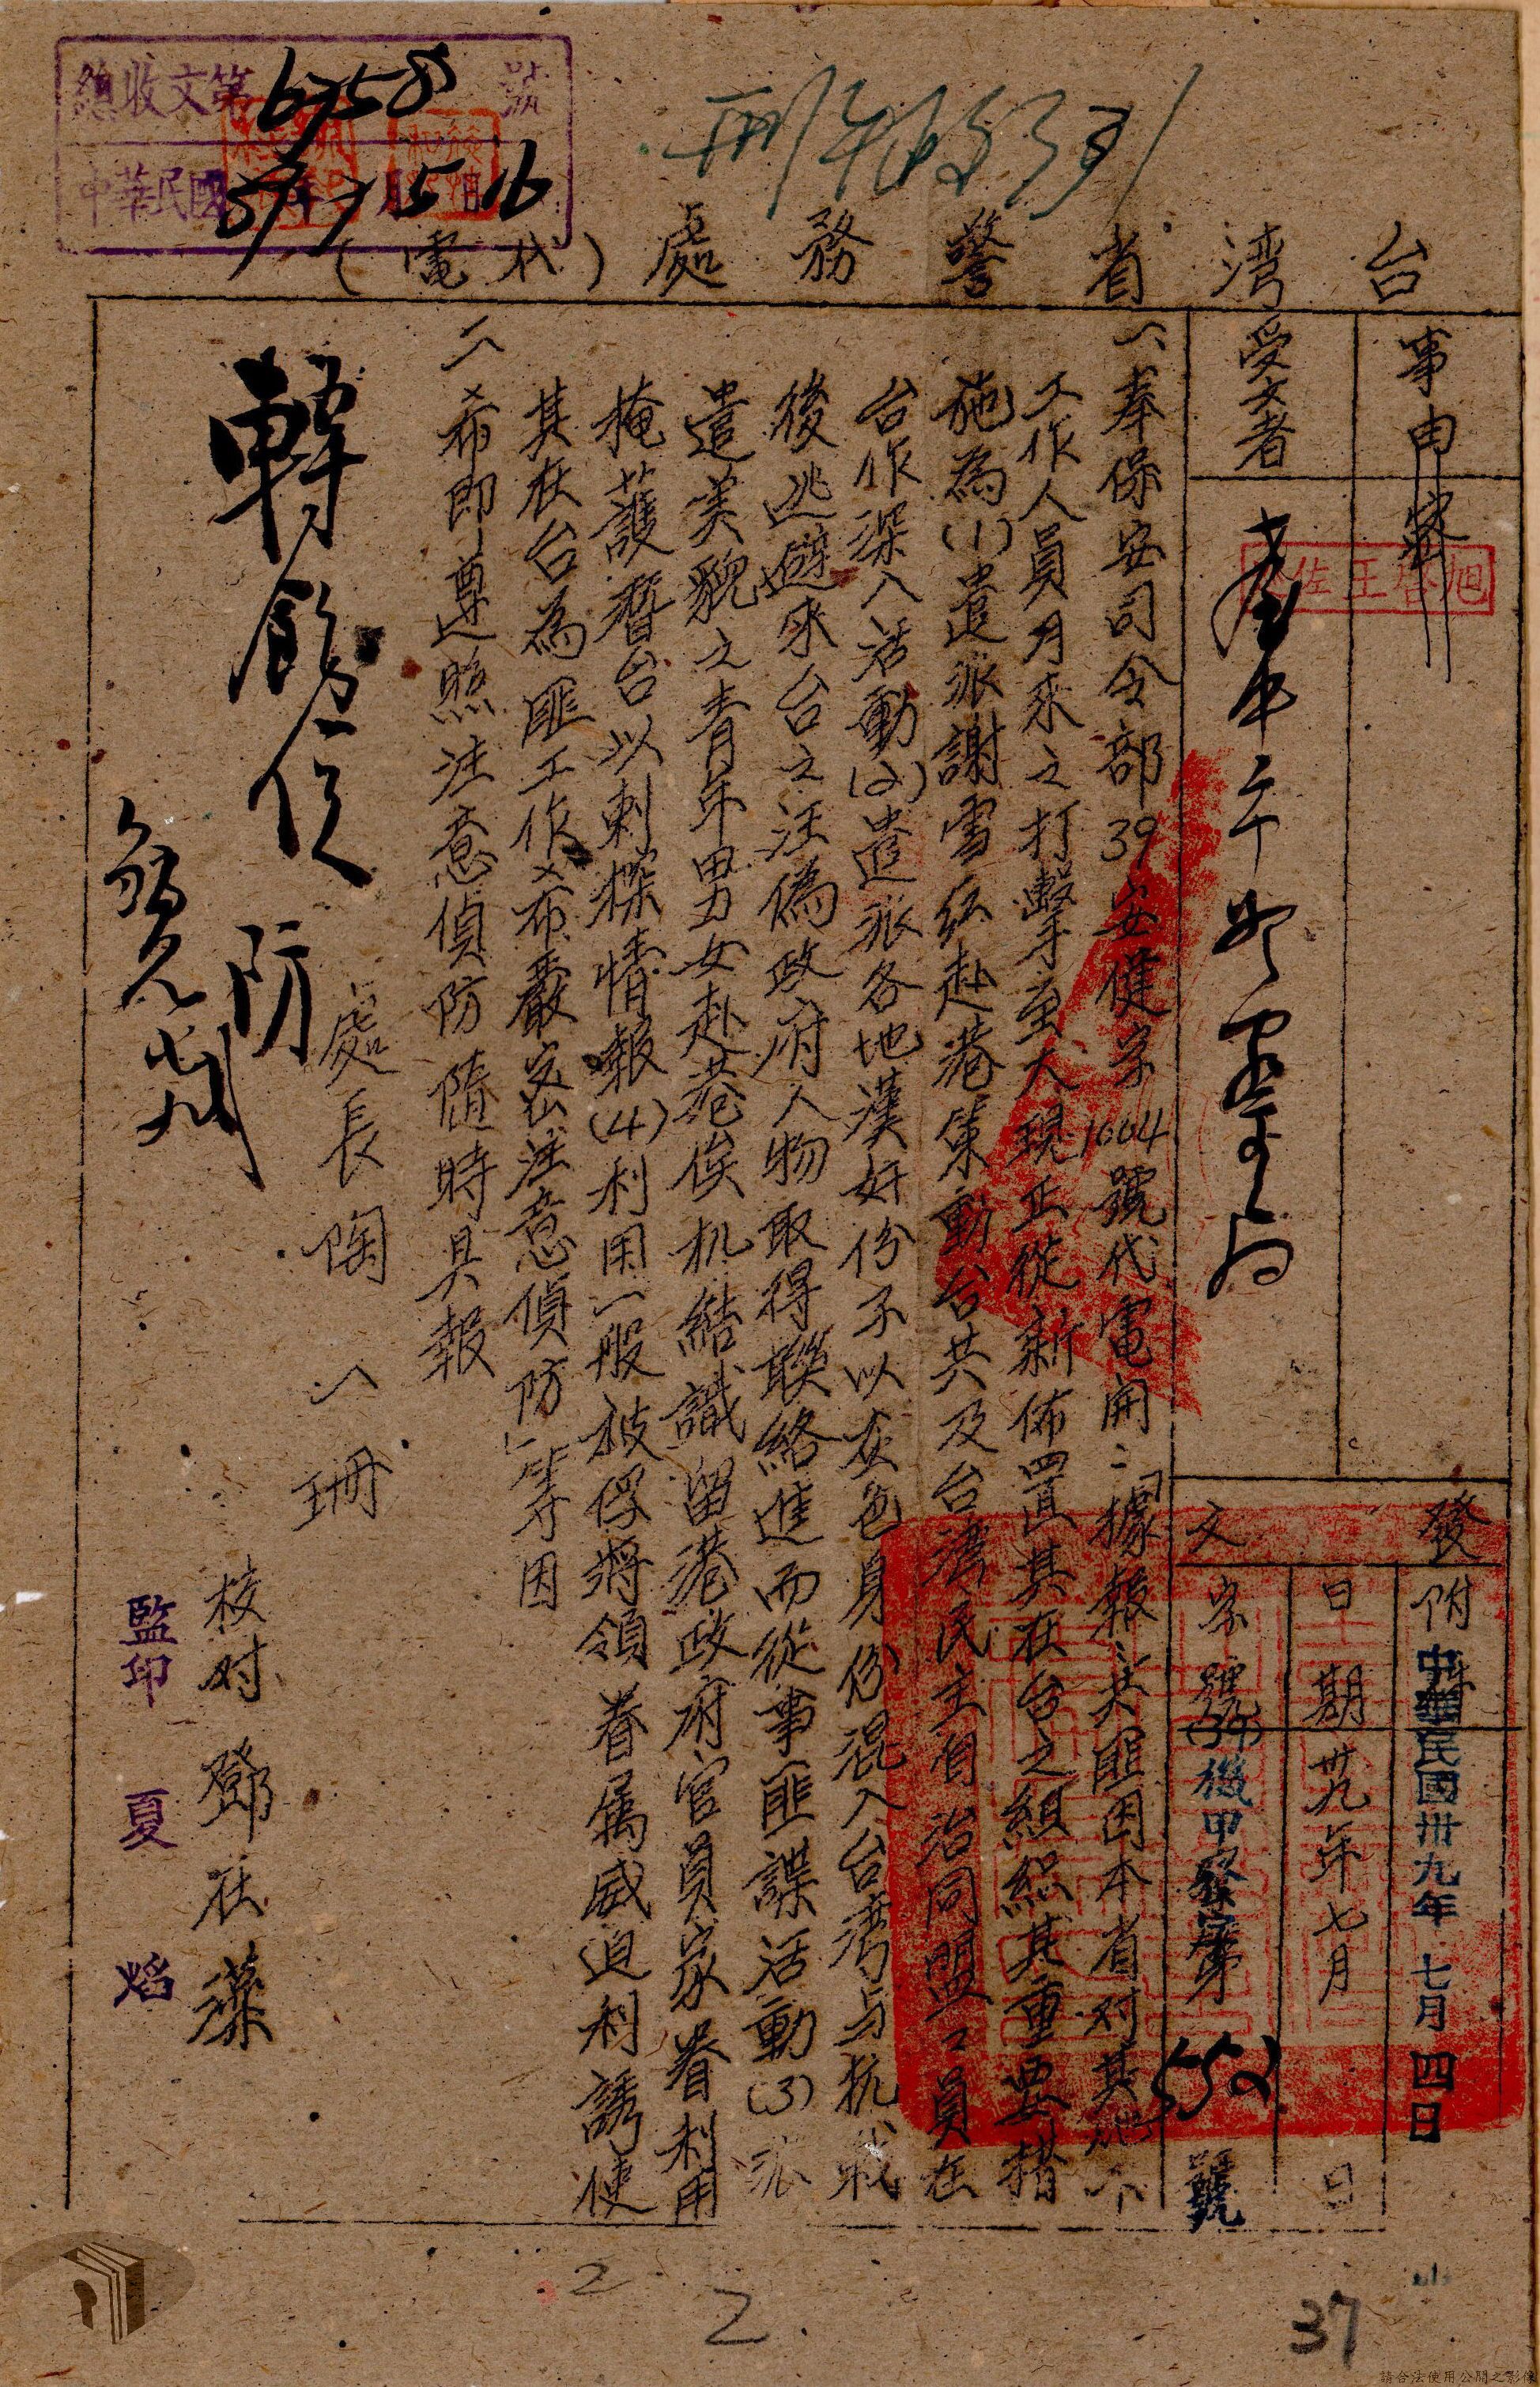 總收文第6758號
中華民國 年 月 日
39 7 5 16
台灣省警務處（代電）
事由
受文者
發文
附件
日期 卅九年七月 日
中華民國卅九年七月四日
字號 (39)機甲察字第552號
一、奉保安司令部39安健字1664號代電開：「據報：共匪因本省對其地下
工作人員月來之打擊重大現正從新佈置其在台之組織其重要措
施為(1)遣派謝雪紅赴港策動台共及台灣民主自治同盟工員在
台作深入活動(2)遣派各地漢奸份子以灰色身份混入台灣与抗战
後逃避來台之汪偽政府人物取得聯絡進而從事匪諜活動(3)派
遣美貌之青年男女赴港俟机結識留港政府官員家眷利用
掩護聲台以刺探情報(4)利用一般被俘將領眷属威迫利誘使
其在台為匪工作希嚴密注意偵防」等因
二、希即遵照注意偵防隨時具報
處長陶一珊
校对 鄧社藻
監印 夏焰
轉飭偵防
2
2
37
請合法使用公開之影像